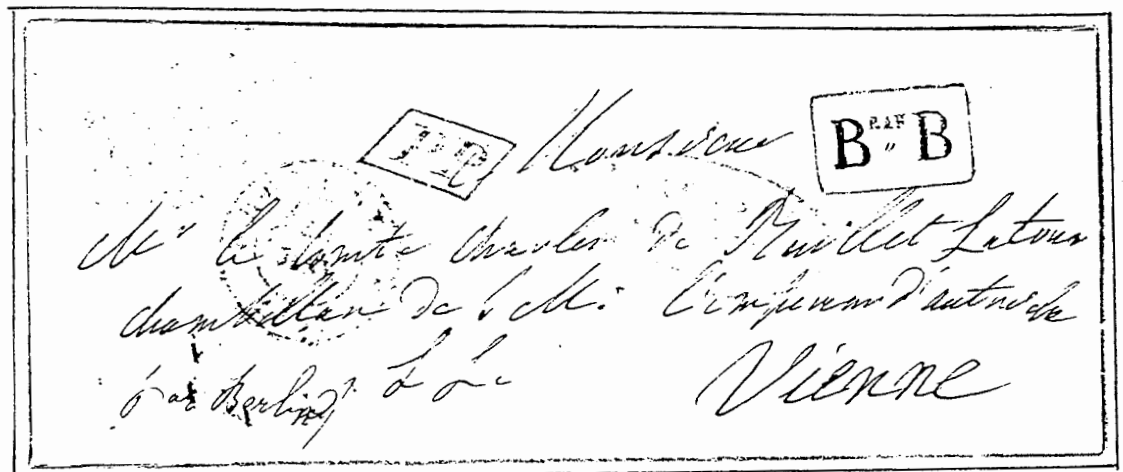 P.P. Monsieur B R.A.F. B
Mr le Comte Charles de Baillet Latour
chambellan de S. M. l'empereur d'autriche
par Berlin Vienne